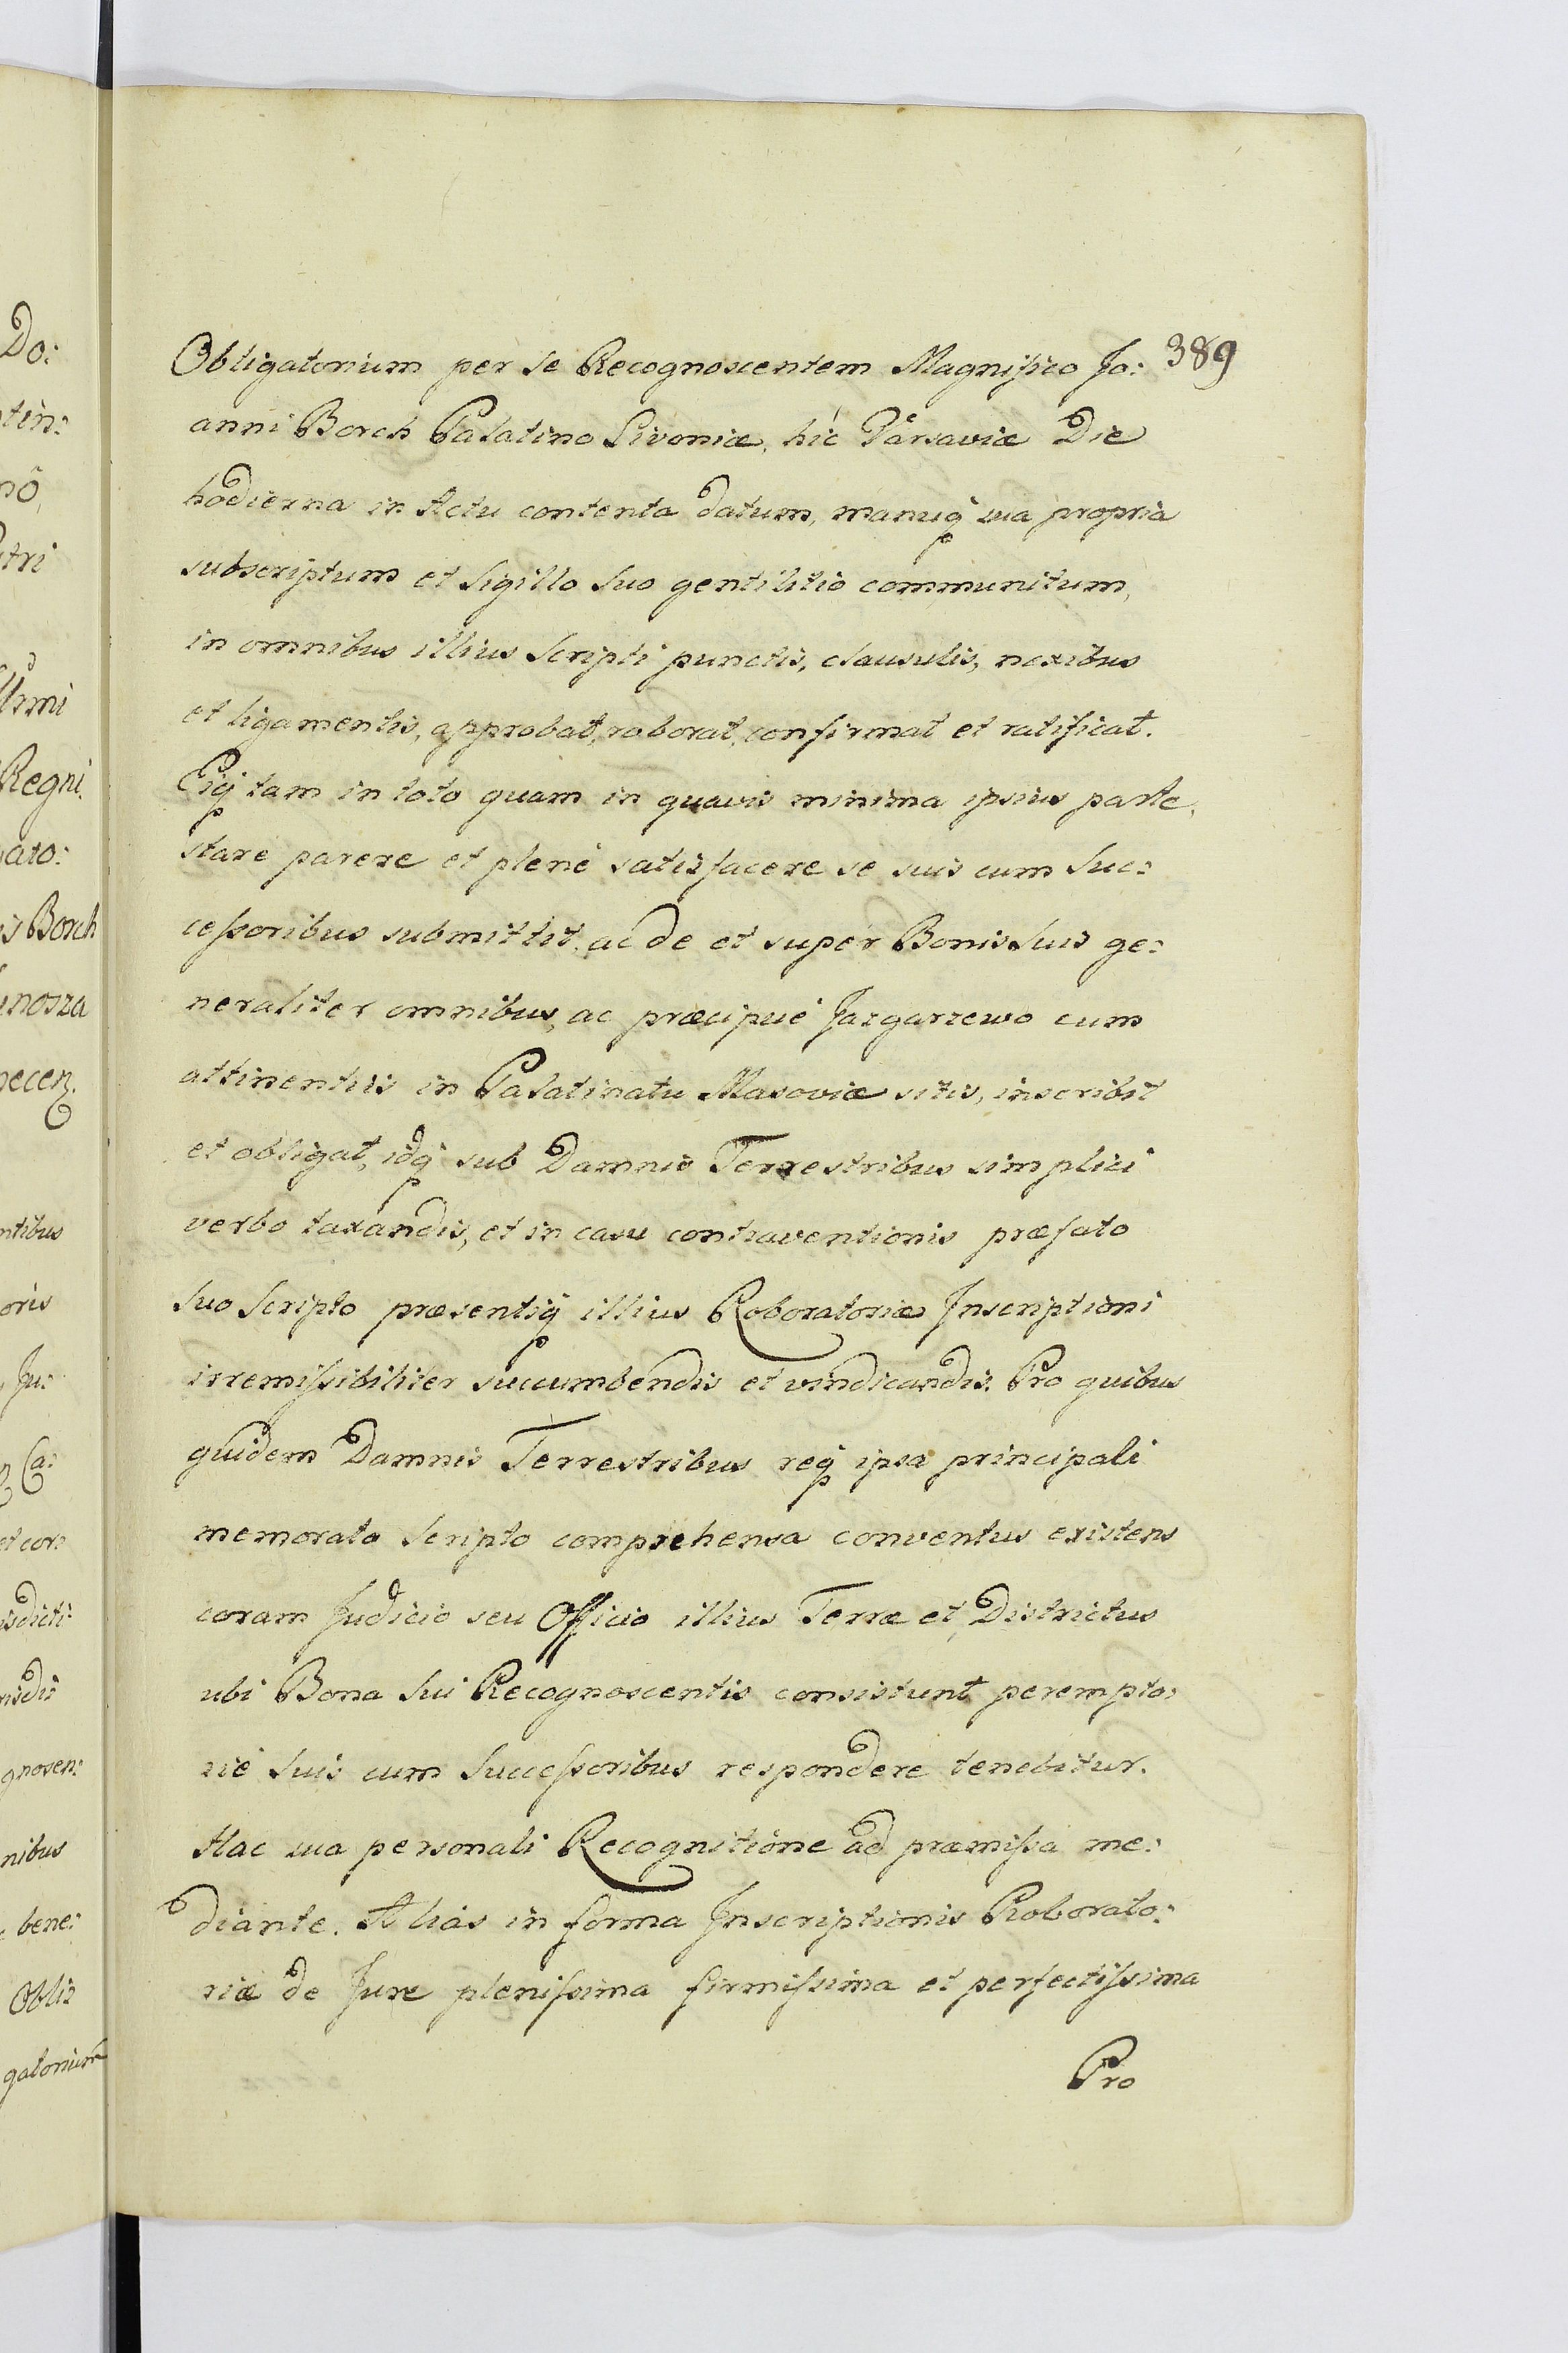 389
Obligatorium per se Recognoscentem Magnifico Jo:
anni Borch Palatino Livoniæ, hic Varsaviæ Die
hodierna in Actu contenta datum, manuq̃ sua propria
subscriptum et Sigillo Suo gentilitio communitum,
in omnibus illius Scripti punctis, clausulis, nexibus
et ligamentis, approbat, roborat, confirmat et ratificat.
Eiq̃ tam in toto quam in quavis minima ipsius parte,
stare parere et plenè satisfacere se suis cum Suc:
cessoribus submittit, ac de et super Bonis Suis ge:
neraliter omnibus, ac præcipuè Jazgarzewo cum
attinentiis in Palatinatu Masoviæ sitis, inscribit
et obligat, idq̃ sub Damnis Terrestribus simplici
verbo taxandis, et in casu contraventionis præfato
Suo Scripto præsentiq̃ illius Roboratoriæ Inscriptioni
irremissibiliter succumbendis et vindicandis. Pro quibus
quidem Damnis Terrestribus req̃ ipsa principali
memorato Scripto comprehensa conventus existens
coram Judicio seu Officio illius Terræ et Districtus
ubi Bona Sui Recognoscentis consistunt perempto:
riè Suis cum Successoribus respondere tenebitur.
Hac sua personali Recognitione ad præmissa me:
diante. Aliàs in forma Inscriptionis Roborato:
riæ de Jure plenissima firmissima et perfectissima
Pro
Do:
nô,
Regni.
ato:
is Borch
nosza
ntibus
oris
Ju:
Ca:
et cor:
gnoscen:
nibus
bene:
Obli:
gatorium